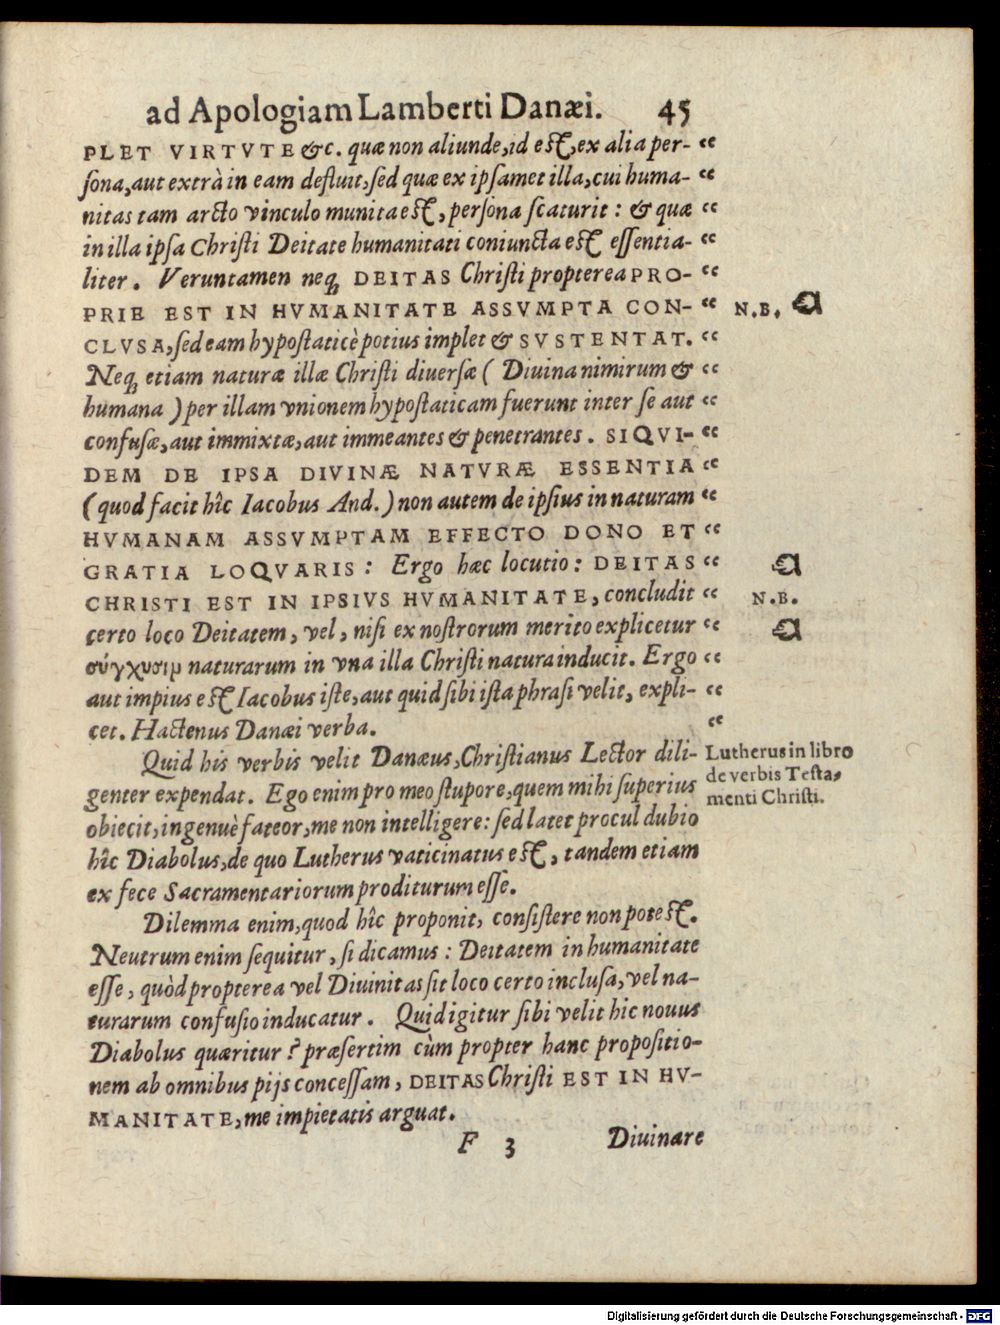 ad Apologiam Lamberti Danæi. 45
PLET VIRTVTE &c. quæ non aliunde, id eſt, ex alia per- “
ſona, aut extrà in eam defluit, ſed quæ ex ipſamet illa, cui huma- “
nitas tam arcto vinculo munita eſt, perſona ſcaturit: & quæ “
in illa ipſa Chriſti Deitate humanitati coniuncta eſt eſſentia- “
liter. Veruntamen neq; DEITAS Chriſti propterea PRO- “
PRIE EST IN HVMANITATE ASSVMPTA CON- “ N.B.
CLVSA, ſed eam hypoſtaticè potius implet & SVSTENTAT. “
Neq; etiam naturæ illæ Chriſti diuerſæ ( Diuina nimirum & “
humana ) per illam vnionem hypoſtaticam fuerunt inter ſe aut “
confuſæ, aut immixtæ, aut immeantes & penetrantes. SIQVI- “
DEM DE IPSA DIVINÆ NATVRÆ ESSENTIA “
(quod facit hîc Iacobus And.) non autem de ipſius in naturam “
HVMANAM ASSVMPTAM EFFECTO DONO ET “
GRATIA LOQVARIS: Ergo hæc locutio: DEITAS “
CHRISTI EST IN IPSIVS HVMANITATE, concludit “ N.B.
certo loco Deitatem, vel, niſi ex noſtrorum merito explicetur “
σύγχυσιμ naturarum in vna illa Chriſti natura inducit. Ergo “
aut impius eſt Iacobus iſte, aut quid ſibi iſta phraſi velit, expli- “
cet. Hactenus Danæi verba. “
Quid his verbis velit Danæus, Chriſtianus Lector dili-
genter expendat. Ego enim pro meo ſtupore, quem mihi ſuperius
obiecit, ingenuè fateor, me non intelligere: ſed latet procul dubio
hîc Diabolus, de quo Lutherus vaticinatus eſt, tandem etiam
ex fece Sacramentariorum proditurum eſſe.
Lutherus in libro
de verbis Teſta-
menti Chriſti.
Dilemma enim, quod hîc proponit, conſiſtere non poteſt.
Neutrum enim ſequitur, ſi dicamus: Deitatem in humanitate
eſſe, quòd propterea vel Diuinitas ſit loco certo incluſa, vel na-
turarum confuſio inducatur. Quid igitur ſibi velit hic nouus
Diabolus quæritur? præſertim cùm propter hanc propoſitio-
nem ab omnibus pijs conceſſam, DEITAS Chriſti EST IN HV-
MANITATE, me impietatis arguat.
F 3 Diuinare
Digitalisierung gefördert durch die Deutsche Forschungsgemeinschaft - DFG